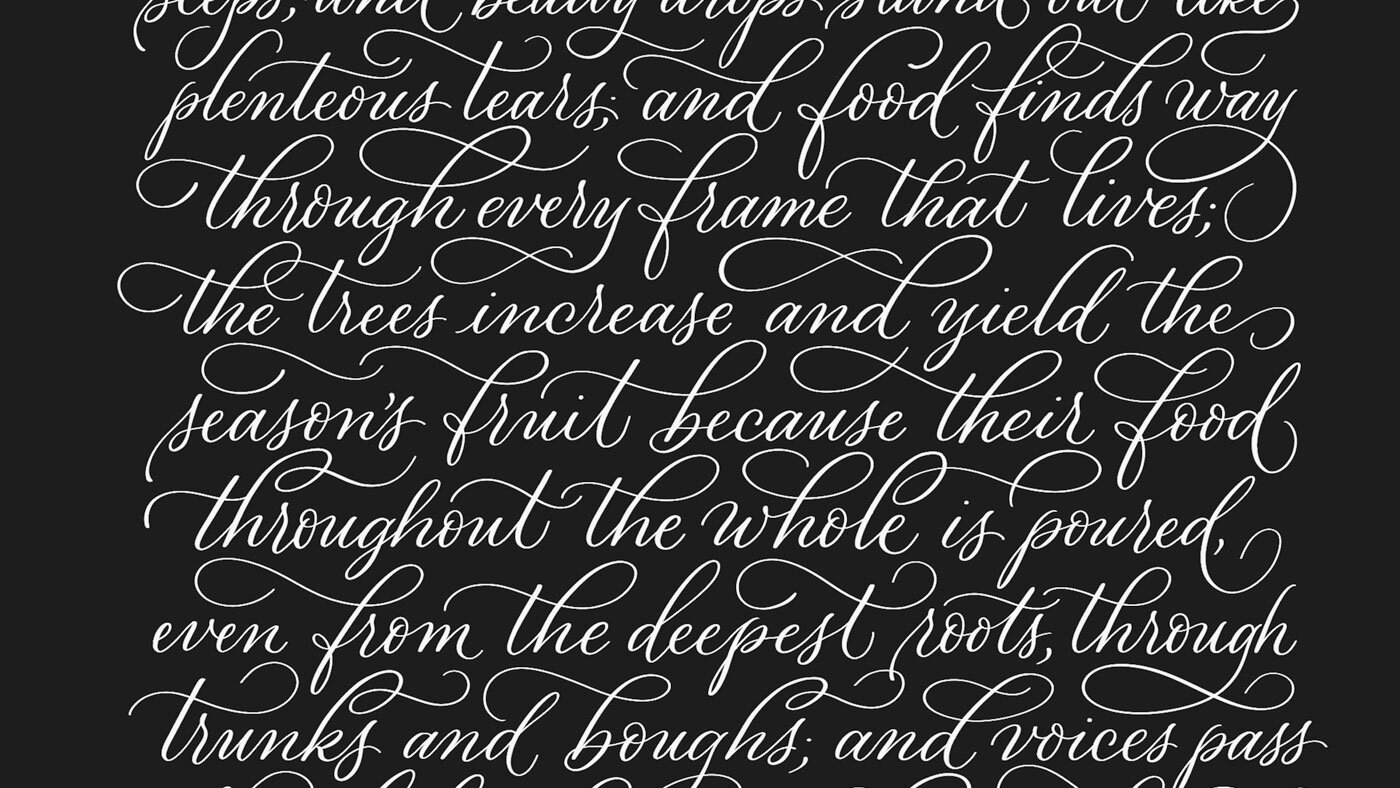 and beauty drops stand out like
plenteous tears; and food finds way
through every frame that lives;
the trees increase and yield the
season's fruit because their food
throughout the whole is poured,
even from the deepest roots, through
trunks and boughs; and voices pass